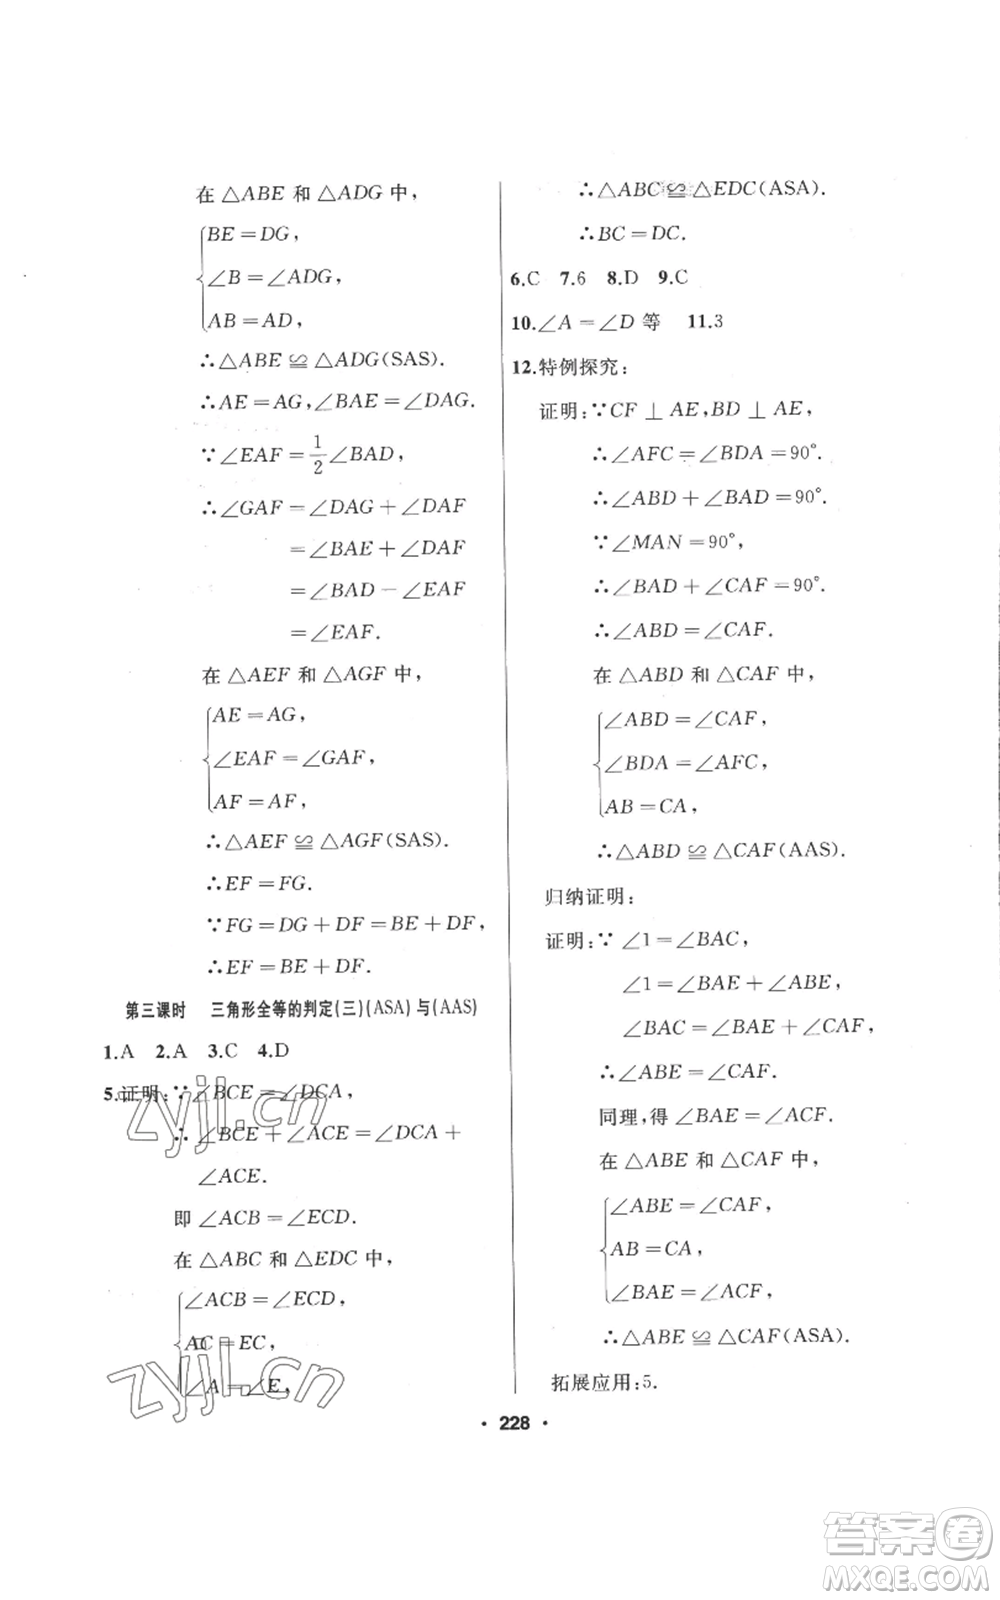 在 △ABE 和 △ADG 中，
BE＝DG，
∠B＝∠ADG，
AB＝AD，
∴△ABE ≌ △ADG(SAS).
∴AE＝AG,∠BAE＝∠DAG.
∵∠EAF＝1/2∠BAD，
∴∠GAF＝∠DAG＋∠DAF
＝∠BAE＋∠DAF
＝∠BAD－∠EAF
＝∠EAF.
在 △AEF 和 △AGF 中，
AE＝AG，
∠EAF＝∠GAF，
AF＝AF，
∴△AEF ≌ △AGF(SAS).
∴EF＝FG.
∵FG＝DG＋DF＝BE＋DF，
∴EF＝BE＋DF.
第三课时 三角形全等的判定(三)(ASA)与(AAS)
1.A 2.A 3.C 4.D
5.证明:∵∠BCE＝∠DCA，
∴∠BCE＋∠ACE＝∠DCA＋
∠ACE.
即∠ACB＝∠ECD.
在 △ABC 和 △EDC 中，
∠ACB＝∠ECD，
AC＝EC，
∠A＝∠E，
∴△ABC ≌ △EDC(ASA).
∴BC＝DC.
6.C 7.6 8.D 9.C
10.∠A＝∠D 等 11.3
12.特例探究:
证明:∵CF⊥AE,BD⊥AE，
∴∠AFC＝∠BDA＝90°.
∴∠ABD＋∠BAD＝90°.
∵∠MAN＝90°，
∴∠BAD＋∠CAF＝90°.
∴∠ABD＝∠CAF.
在 △ABD 和 △CAF 中，
∠ABD＝∠CAF，
∠BDA＝∠AFC，
AB＝CA，
∴△ABD ≌ △CAF(AAS).
归纳证明:
证明:∵∠1＝∠BAC，
∠1＝∠BAE＋∠ABE，
∠BAC＝∠BAE＋∠CAF，
∴∠ABE＝∠CAF.
同理,得∠BAE＝∠ACF.
在 △ABE 和 △CAF 中，
∠ABE＝∠CAF，
AB＝CA，
∠BAE＝∠ACF，
∴△ABE ≌ △CAF(ASA).
拓展应用:5.
· 228 ·
zyjl.cn
zyjl.cn
答案圈
MXQE.COM